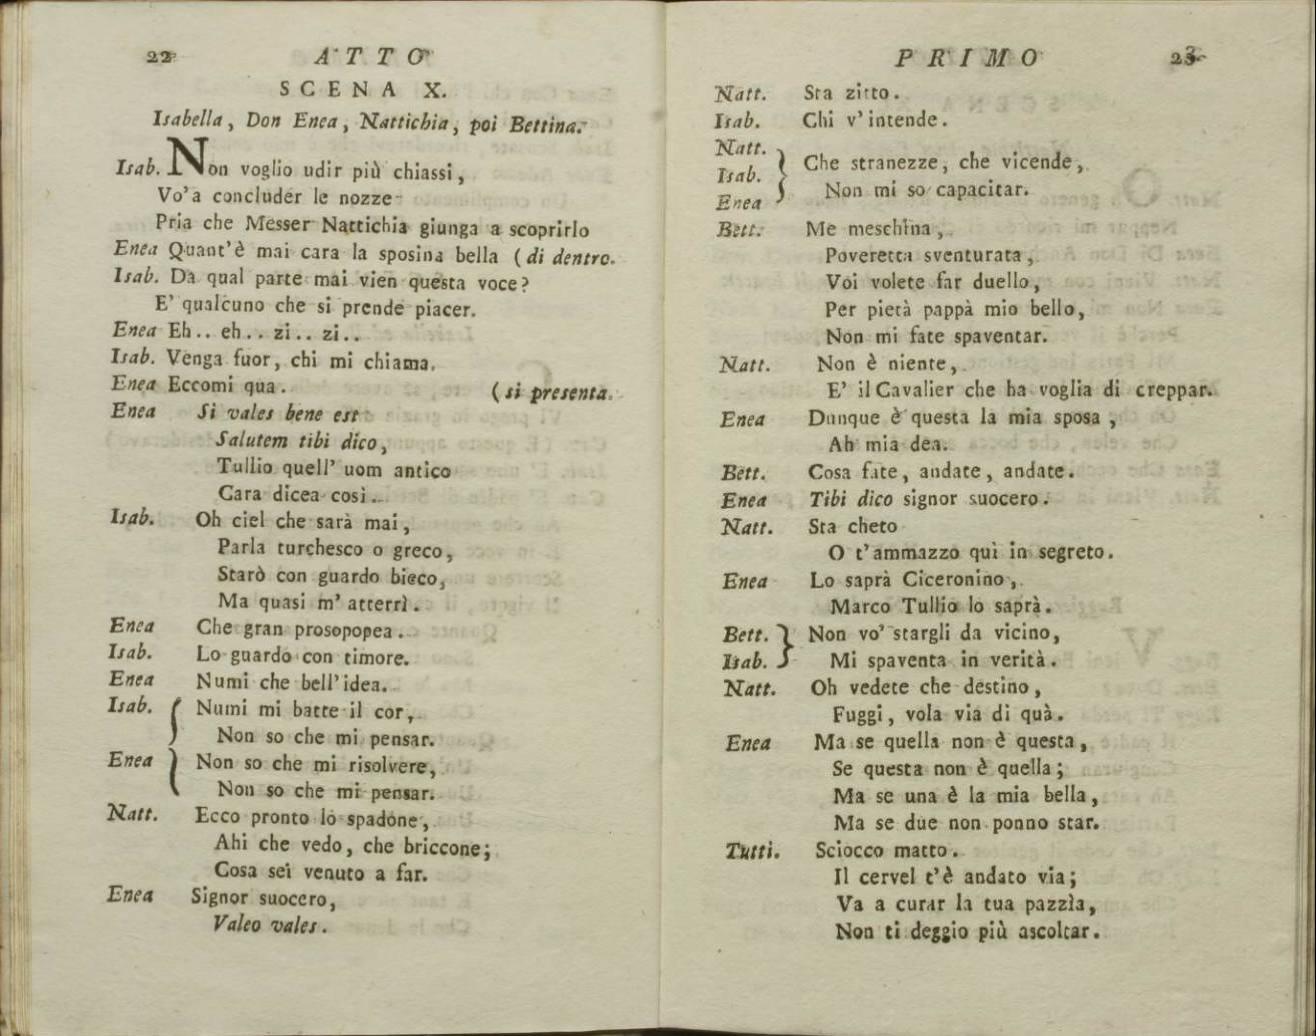 22 ATTO
SCENA X.
Isabella, Don Enea, Nattichia, poi Bettina.
Isab. Non voglio udir più chiassi,
Vo'a concluder le nozze
Pria che Messer Nattichia giunga a scoprirlo
Enea Quant'è mai cara la sposina bella (di dentro.
Isab. Da qual parte mai vien questa voce?
E' qualcuno che si prende piacer.
Enea Eh.. eh.. zi.. zi..
Isab. Venga fuor, chi mi chiama.
Enea Eccomi qua. (si presenta.
Enea Si vales bene est
Salutem tibi dico,
Tullio quell' uom antico
Cara dicea così..
Isab. Oh ciel che sarà mai,
Parla turchesco o greco,
Starò con guardo bieco,
Ma quasi m' atterrì.
Enea Che gran prosopopea.
Isab. Lo guardo con timore.
Enea Numi che bell'idea.
Isab. Numi mi batte il cor,
Non so che mi pensar.
Enea Non so che mi risolvere,
Non so che mi pensar.
Natt. Ecco pronto lo spadone,
Ahi che vedo, che briccone;
Cosa sei venuto a far.
Enea Signor suocero,
Valeo vales.
PRIMO 23
Natt. Sta zitto.
Isab. Chi v'intende.
Natt.
Isab. Che stranezze, che vicende,
Enea Non mi so capacitar.
Bett. Me meschina,
Poveretta sventurata,
Voi volete far duello,
Per pietà pappà mio bello,
Non mi fate spaventar.
Natt. Non è niente,
E' il Cavalier che ha voglia di creppar.
Enea Dunque è questa la mia sposa,
Ah mia dea.
Bett. Cosa fate, andate, andate.
Enea Tibi dico signor suocero.
Natt. Sta cheto
O t'ammazzo quì in segreto.
Enea Lo saprà Ciceronino,
Marco Tullio lo saprà.
Bett. Non vo' stargli da vicino,
Isab. Mi spaventa in verità.
Natt. Oh vedete che destino,
Fuggi, vola via di quà.
Enea Ma se quella non è questa,
Se questa non è quella;
Ma se una è la mia bella,
Ma se due non ponno star.
Tutti. Sciocco matto.
Il cervel t'è andato via;
Va a curar la tua pazzìa,
Non ti deggio più ascoltar.